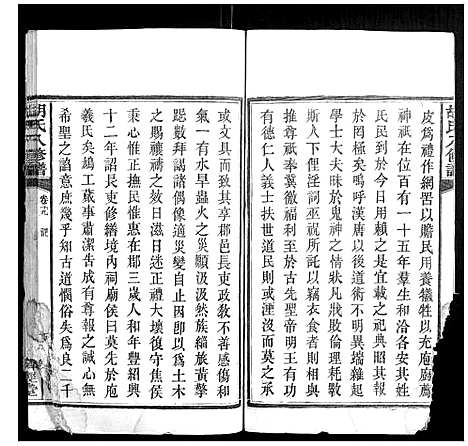 皮為禮作網罟以贍民用養犧牲以充庖廚薦
神祇在位百有一十五年羣生和洽各安其性
民到於今日用賴之是宜載之祀典昭其報
於罔極矣周漢而後禮制不明異端雜起縉紳
學士大夫昧於鬼神之情狀凡戕敗倫理耗斁
斯人下俚淫詞巫視所託以竊衣食者則自
推尊祇奉薰徼福利而至於古先聖帝明王
有德仁人義士扶世導民法後陵夷漫沒而莫之承
或文具而致其享郡邑長吏政敎不善感傷和
氣一有水旱蟲火之災顚頓汲汲然族緇黃擎
跽數拜謁諂偶像適災變自止因即以為土木
之賜禳禱之妓日滋日迷正禮大壞復守焦侯
秉心惟正撫民惟惠在郡三歲人和年豐紹興
十二年詔長吏修繕境內祠廟侯曰莫先於
羲氏矣鳩工蕆事肅潔告成有尊報之誠心無
希聖之諂意庶幾乎知古道憫俗失為良二千
胡氏八修譜
卷首 記
胡氏八修譜